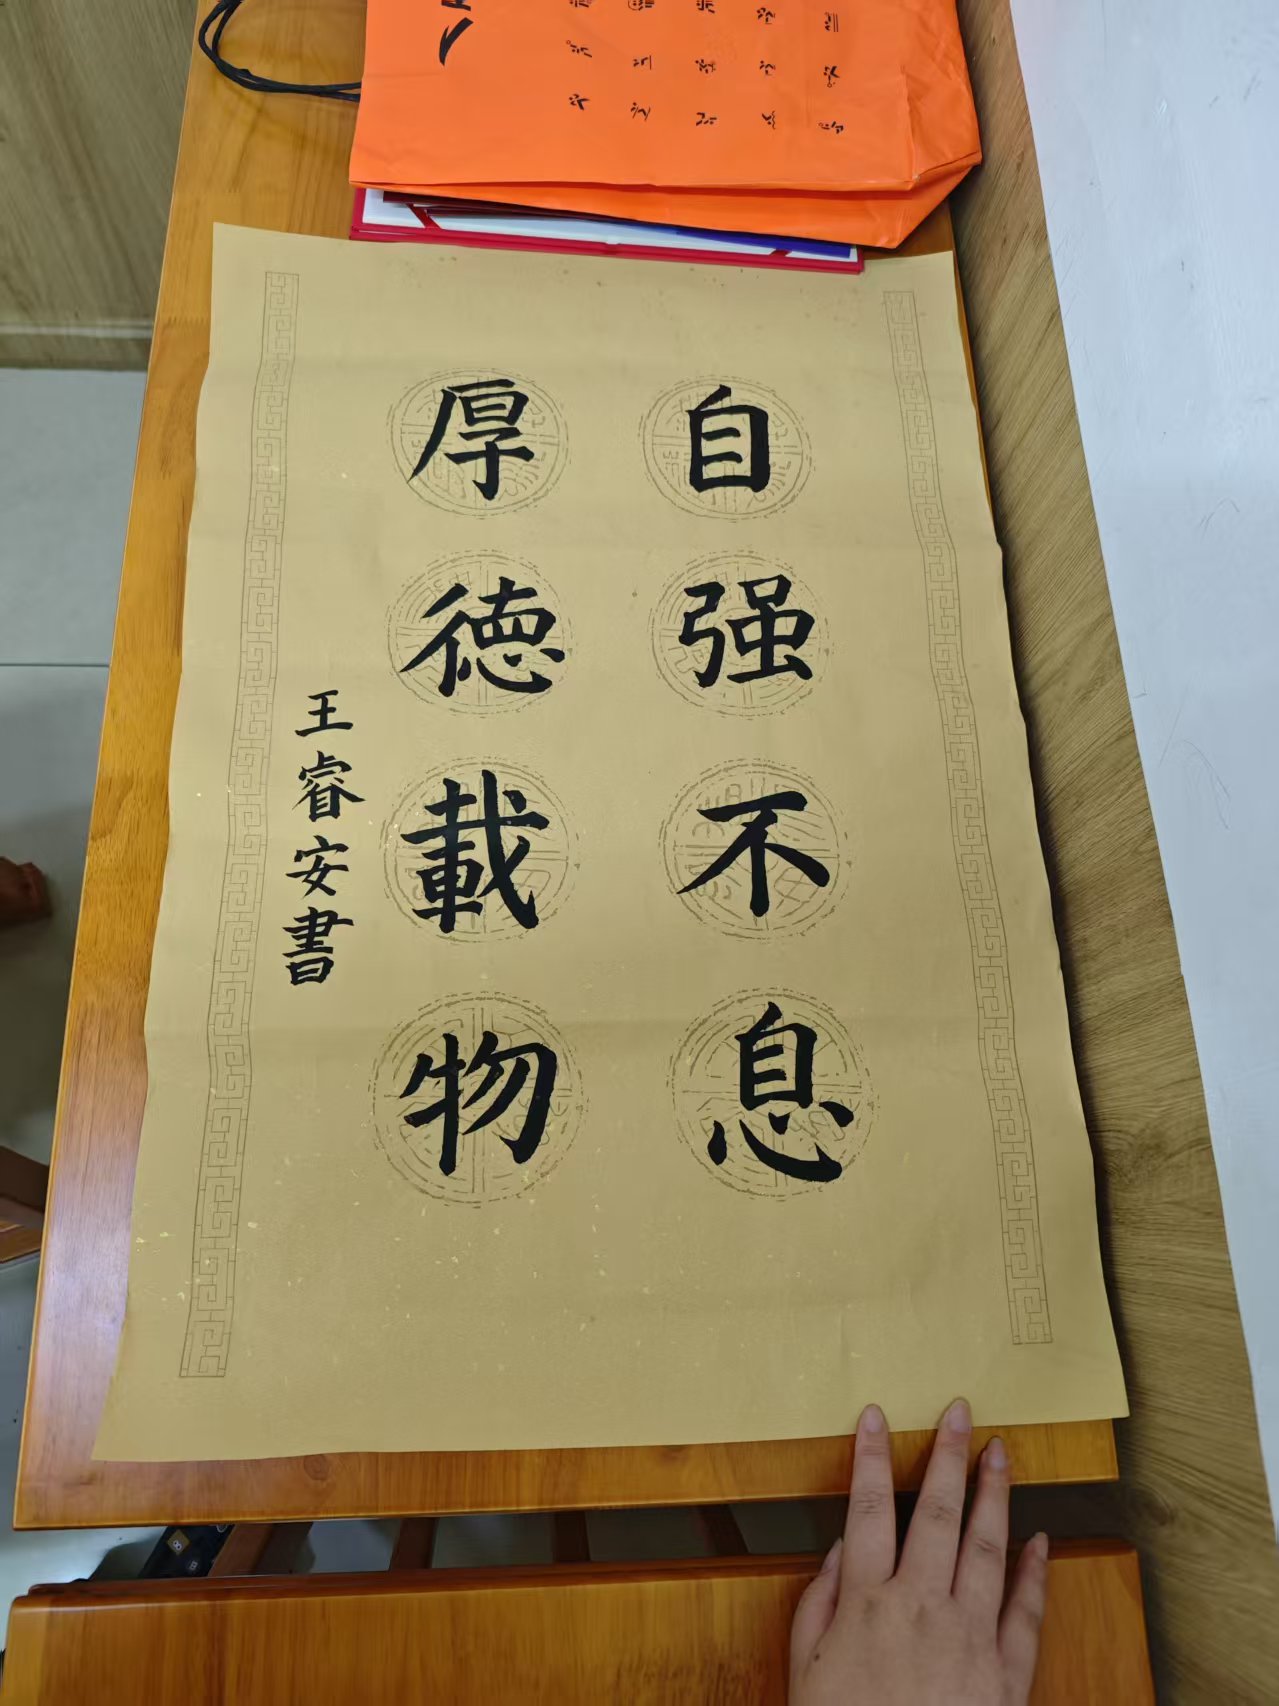 自强不息
厚德載物
王睿安書